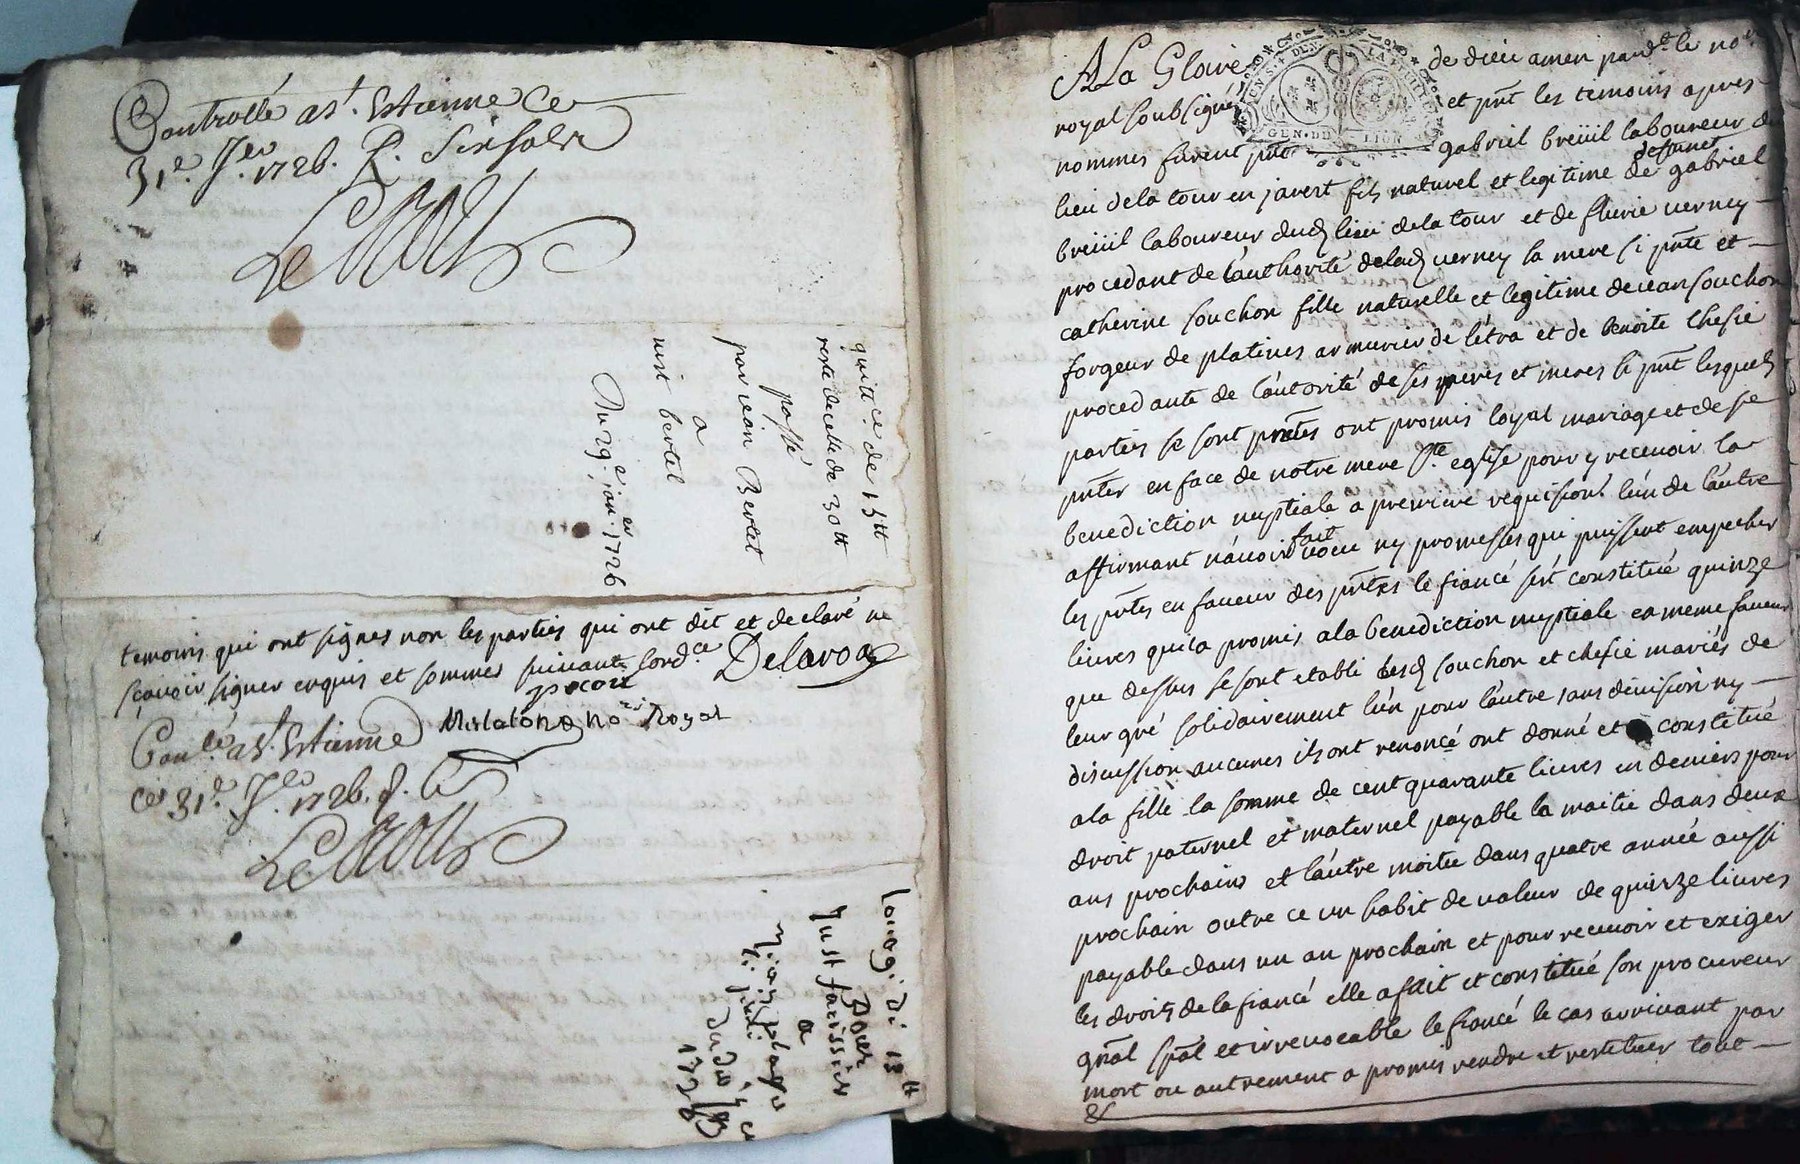 Controllé a st. Estienne ce
31e. Jer. 1726. R. Six sols
quitt.ce de 15tt
reste de celle de 30tt
passé
par jean Berlet
a
nist bertel
Du 29e. janer. 1726
temoins qui ont signes non les parties qui ont dit et declaré ne
sçavoir signer enquis et sommes suivant l'ord.ce Delaroa
No.re Royal
Con.lé a st. Estienne
ce 31e. Jer. 1726. R.
13tt
Pour
a
Just
1726
A La Gloire de dieu amen pard.t le no.re
royal soubsigné et p̅n̅t les temoins apres
nommes furent p̅n̅t gabriel breüil laboureur du
lieu de la tour en javest fils naturel et legitime de defunct gabriel
breüil laboureur dud lieu de la tour et de fleurie verney
procedant de l'authorité de lad verney sa mere si p̅n̅te et
catherine souchon fille naturelle et legitime de jean souchon
forgeur de platines armurier de létra et de benoite chesie
procedante de l'autorité de ses peres et meres si p̅n̅t lesquels
parties se sont p̅n̅tes ont promis loyal mariage et de se
p̅n̅ter en face de notre mere Ste eglise pour y recevoir la
benediction nuptiale a premiere requison. l'un de l'autre
affirmant n'avoir fait voeu ny promesses qui puissent empecher
les p̅n̅tes en faveur des p̅n̅tes le fiancé s'est constitué quinze
livres qu'il a promis a la benediction nuptiale en meme faveur
que dessus se sont etabli lesd souchon et chesie mariés de
leur gré solidairement l'un pour l'autre sans division ny
discussion aucunes ils ont renoncé ont donné et constitué
a la fille la somme de cent quarante livres en deniers pour
droit paternel et maternel payable la moitie dans deux
ans prochains et l'autre moitie dans quatre année aussi
prochain outre ce un habit de valeur de quinze livres
payable dans un an prochain et pour recevoir et exiger
les droits de la fiancé elle a fait et constitué son procureur
gn̅al sp̅al et irrevocable le fiancé le cas arrivant par
mort ou autrement a promis rendre et restituer tout
&